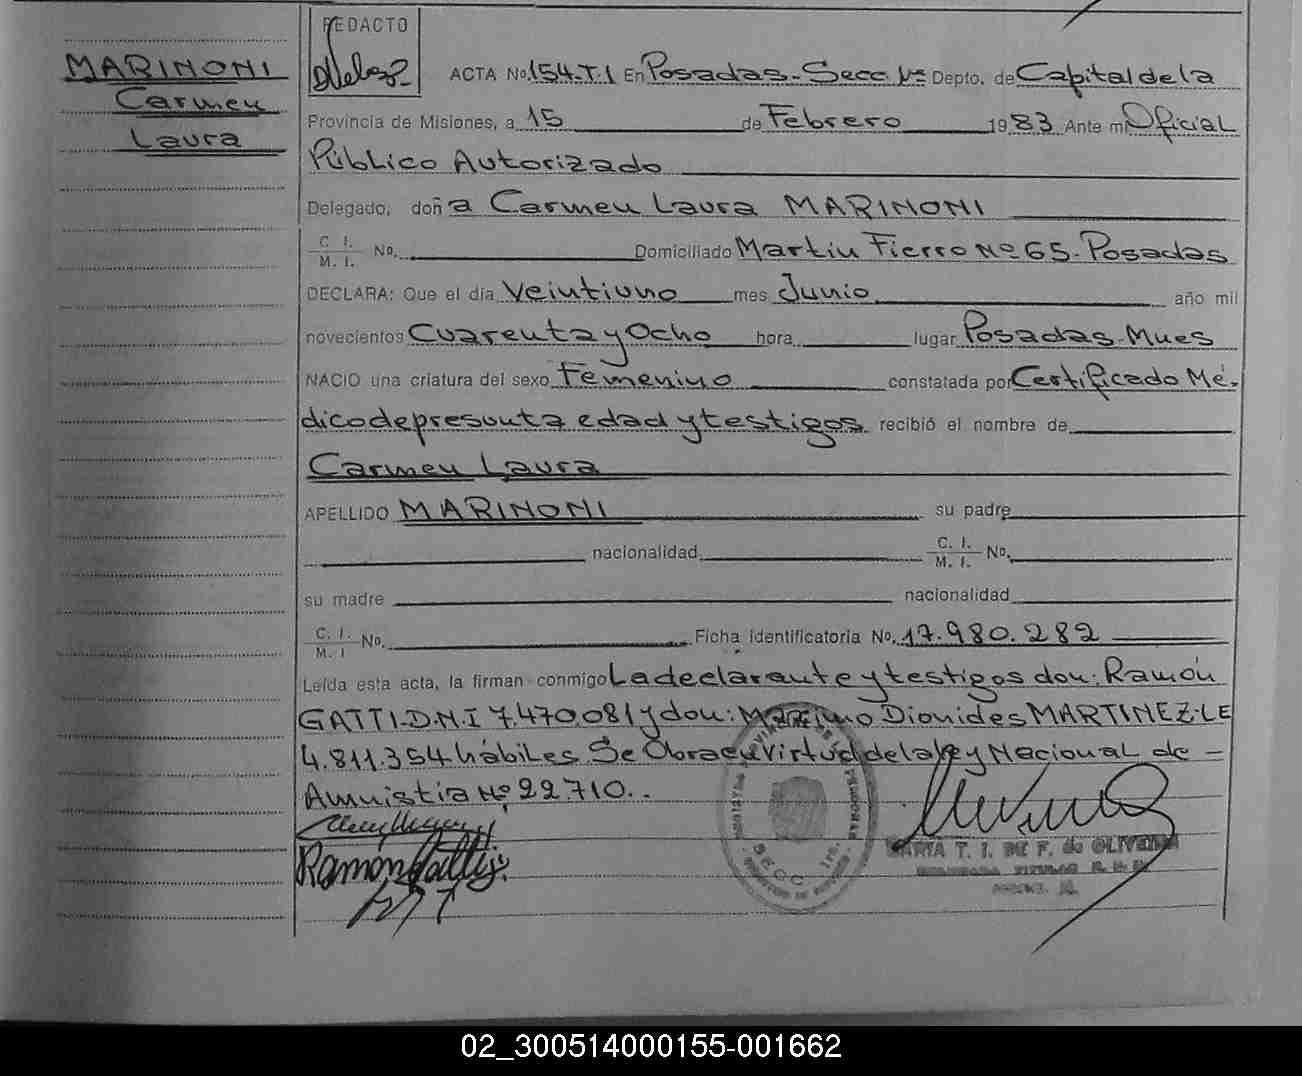 MARINONI
Carmen
Laura
REDACTO
ACTA No. 154.T.1 En Posadas - Secc. 1ª Depto. de Capital de la
Provincia de Misiones, a 15 de Febrero 1983 Ante mi Oficial
Público Autorizado
Delegado, doña Carmen Laura MARINONI
C. I. M. I. No. Domiciliado Martin Fierro Nº 65. Posadas
DECLARA: Que el día Veintiuno mes Junio año mil
novecientos Cuarenta y Ocho hora lugar Posadas - Mnes
NACIO una criatura del sexo Femenino constatada por Certificado Mé-
dico de presunta edad y testigos recibió el nombre de
Carmen Laura
APELLIDO MARINONI su padre
nacionalidad C. I. M. I. No.
su madre nacionalidad
C. I. M. I No. Ficha identificatoria No. 17.980.282
Leída esta acta, la firman conmigo La declarante y testigos don: Ramón
GATTI - D.N.I 7.470.081 y don: Maximo Dionides MARTINEZ - LE
4.811.354 hábiles. Se Obra en Virtud de la ley Nacional de -
Amnistia Nº 22.710..
Ramon Gatti
MARIA T. I. DE F. de OLIVEIRA
SECC. 1ra.
02_300514000155-001662